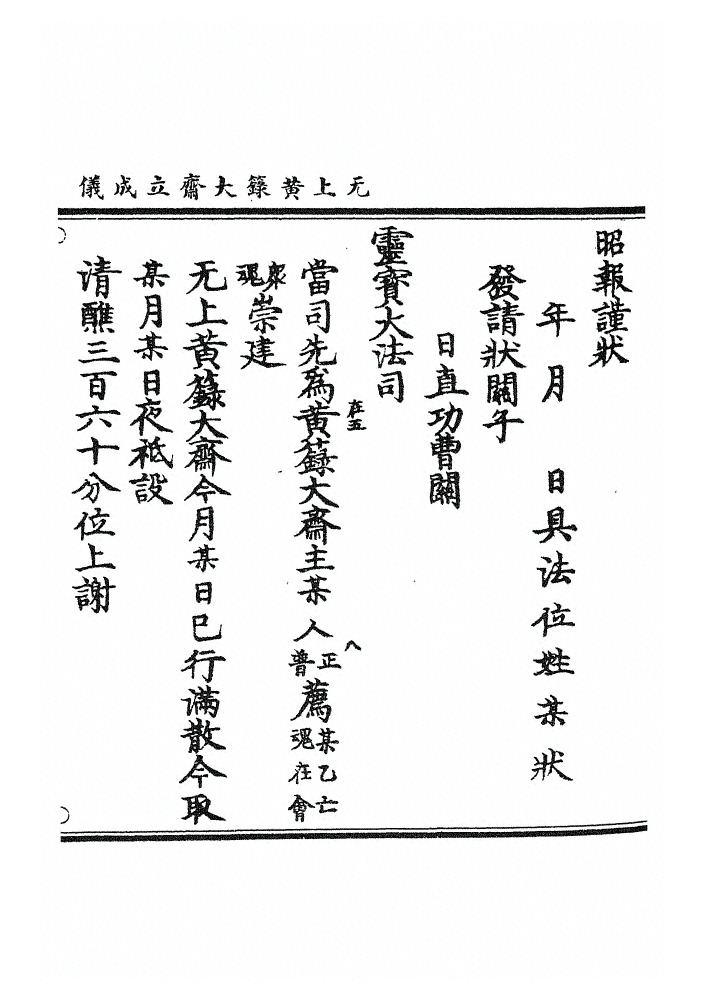 无上黄籙大齋立成儀
昭報謹狀
年月　日具法位姓某狀
發請狀關子
日直功曹關
靈寶大法司
當司先爲黄籙大齋主某人正普薦某乙亡魂在會
在五
八
衆魂崇建
无上黄籙大齋今月某日已行滿散今取
某月某日夜祗設
清醮三百六十分位上謝